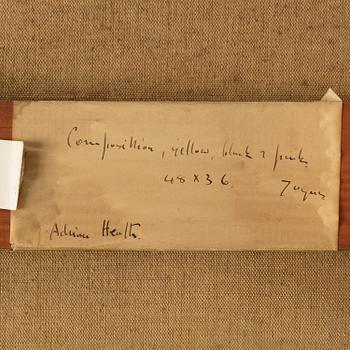 Composition, yellow, black & pink
48 x 36.
Adrian Heath.